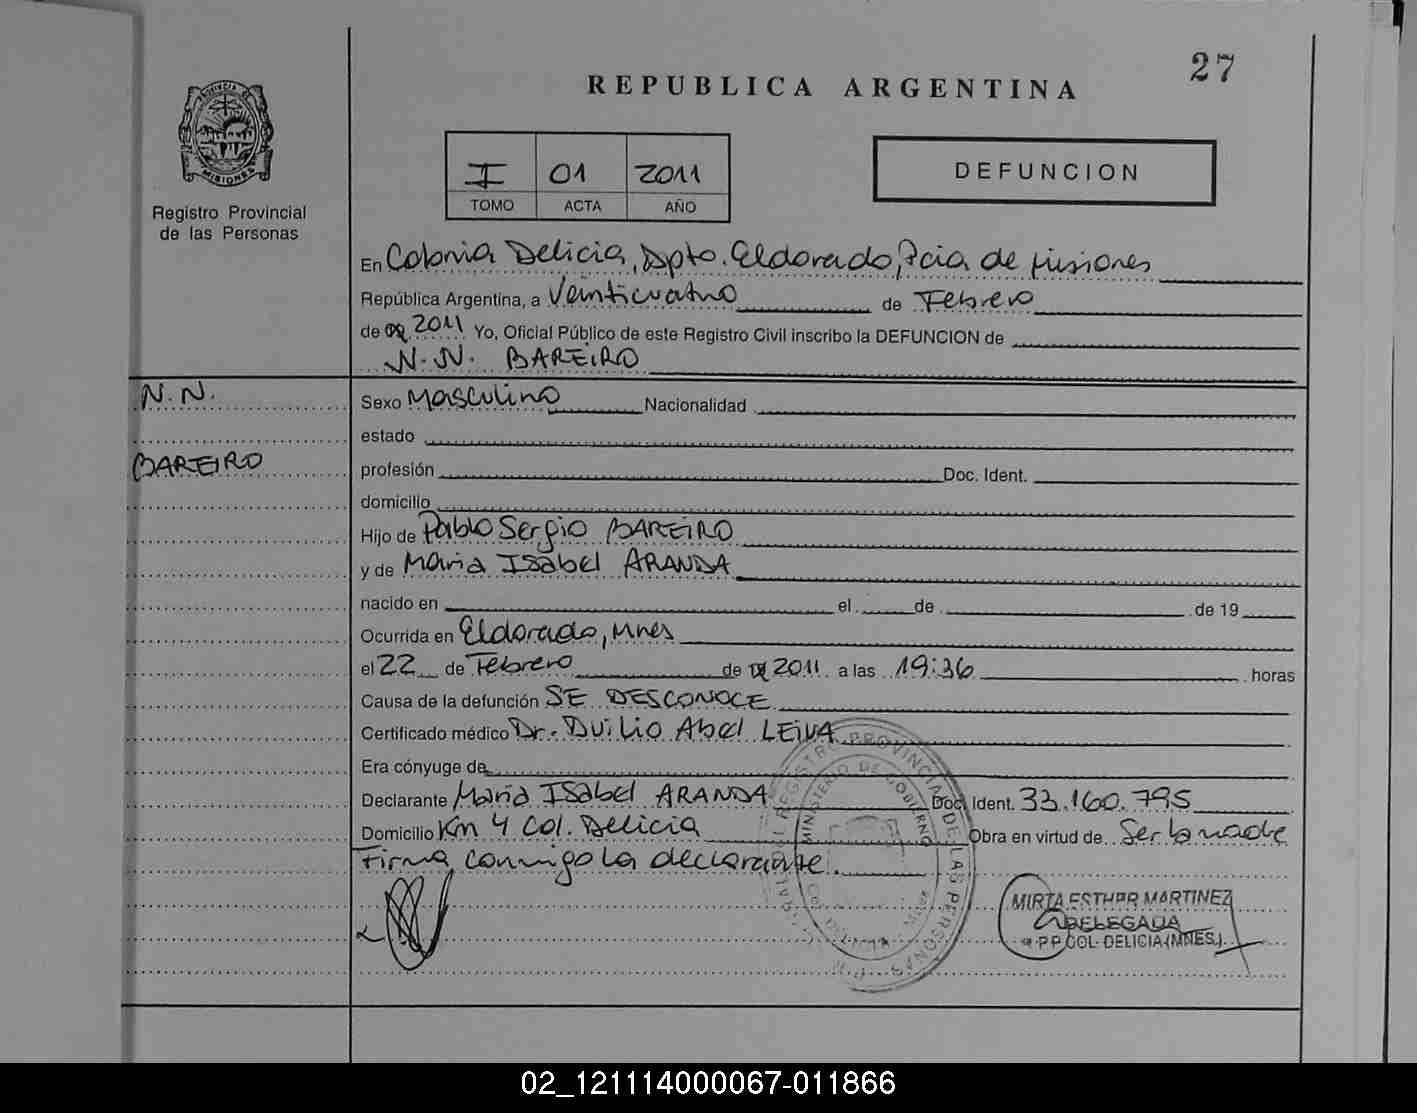 27
REPUBLICA ARGENTINA
PROVINCIA DE
MISIONES
Registro Provincial
de las Personas
I 01 2011
TOMO ACTA AÑO
DEFUNCION
En Colonia Delicia, Dpto. Eldorado, Pcia de Misiones
República Argentina, a Veinticuatro de Febrero
de 2011 Yo, Oficial Público de este Registro Civil inscribo la DEFUNCION de
N.N. BAREIRO
N.N.
BAREIRO
Sexo Masculino Nacionalidad
estado
profesión Doc. Ident.
domicilio
Hijo de Pablo Sergio BAREIRO
y de Maria Isabel ARANDA
nacido en el de de 19
Ocurrida en Eldorado, Mnes
el 22 de Febrero de 2011 a las 19:36 horas
Causa de la defunción SE DESCONOCE
Certificado médico Dr. Duilio Abel LEIVA
Era cónyuge de
Declarante Maria Isabel ARANDA Doc. Ident. 33.160.795
Domicilio Km 4 Col. Delicia Obra en virtud de Ser la madre
Firma conmigo la declarante.
REGISTRO PROVINCIAL DE LAS PERSONAS
MINISTERIO DE GOBIERNO
MIRTA ESTHER MARTINEZ
DELEGADA
COL. DELICIA (MNES.)
02_121114000067-011866